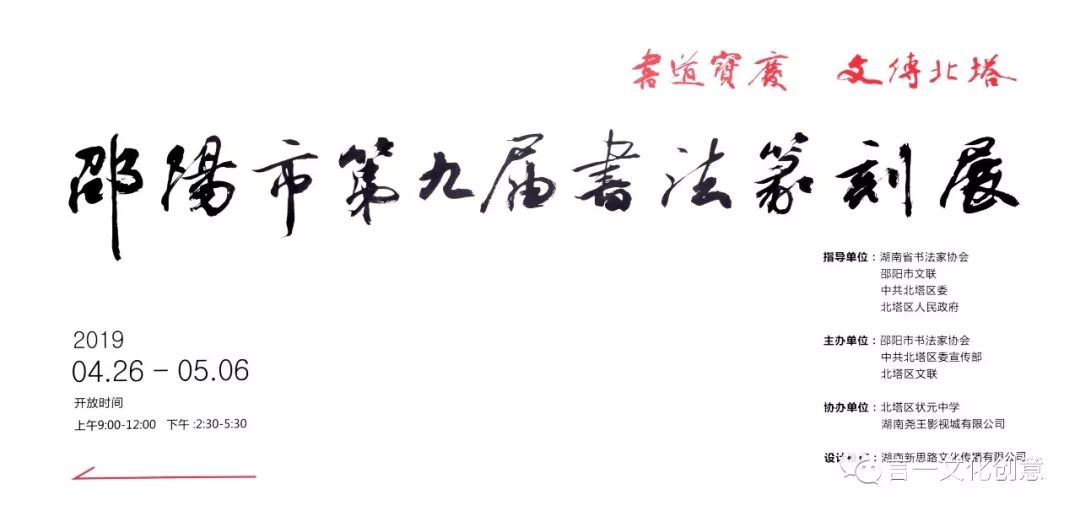 書道寶慶 文傳北塔
邵陽市第九届書法篆刻展
指导单位：湖南省书法家协会
邵阳市文联
中共北塔区委
北塔区人民政府
主办单位：邵阳市书法家协会
中共北塔区委宣传部
北塔区文联
协办单位：北塔区状元中学
湖南尧王影视城有限公司
设计 湖南新思路文化传播有限公司
言一文化创意
2019
04.26 – 05.06
开放时间
上午9:00-12:00 下午 :2:30-5:30